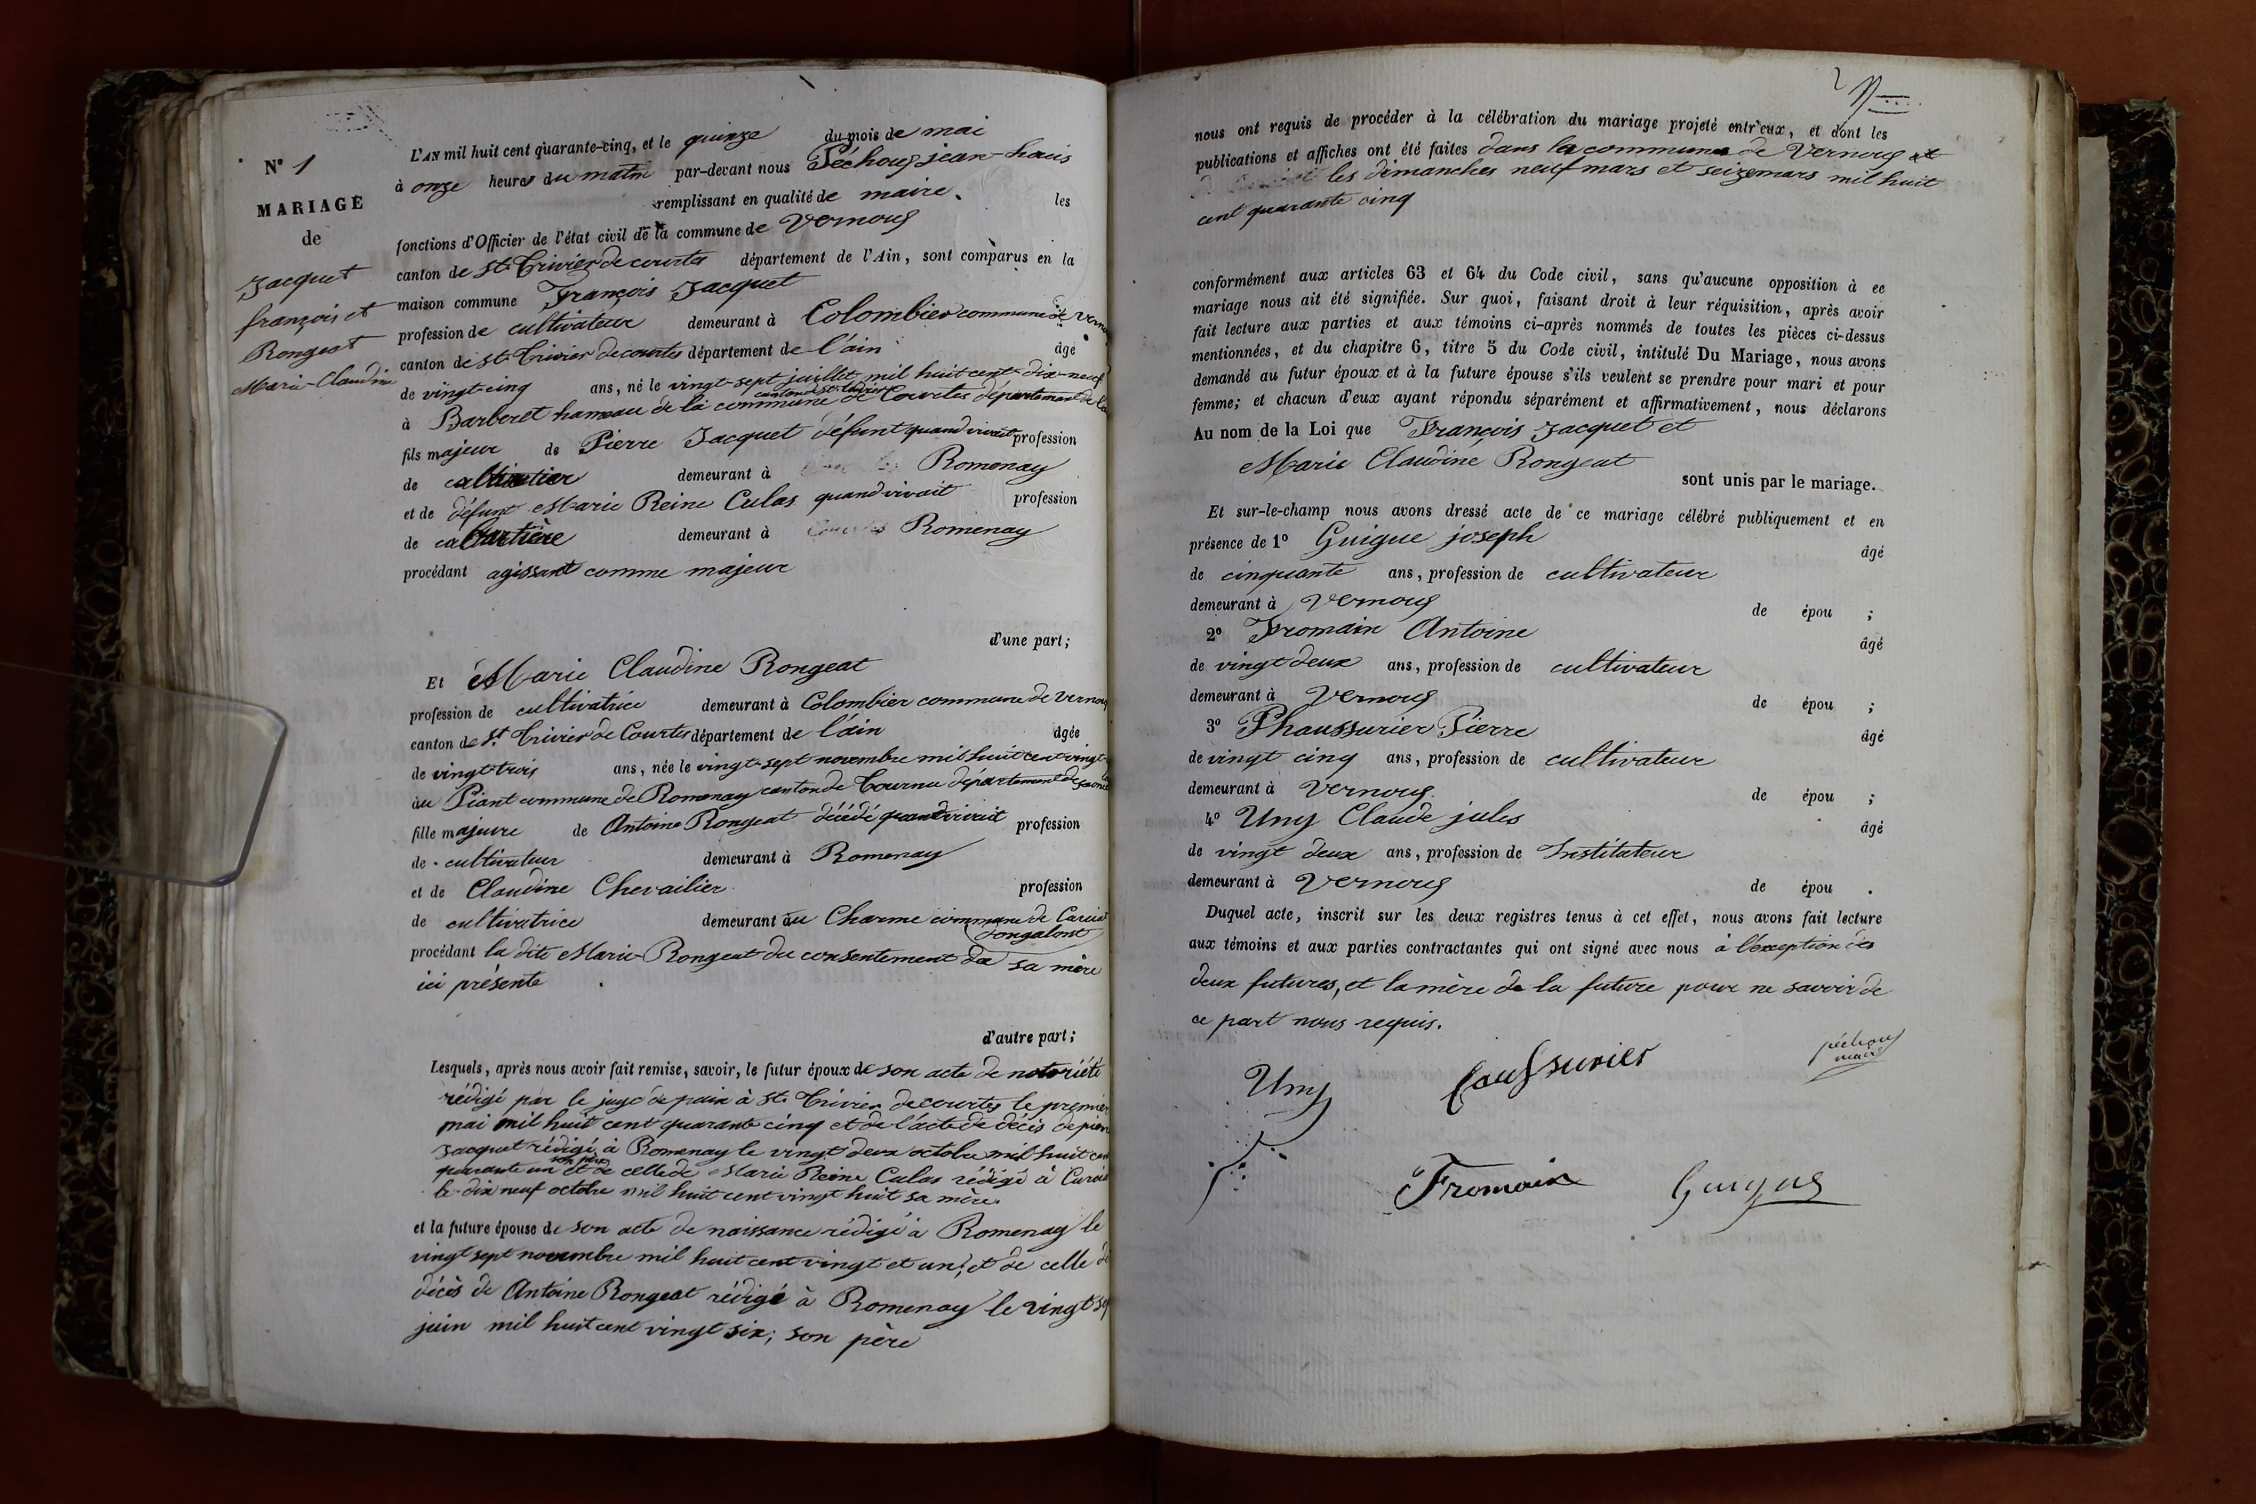 N° 1
MARIAGE
de
Jacquet
françois et
Rongeat
Marie-Claudine
L'AN mil huit cent quarante-cinq, et le quinze du mois de mai
à onze heures du matin par-devant nous Péchoux jean-louis
remplissant en qualité de maire. les
fonctions d'Officier de l'état civil de la commune de Vernoux
canton de St Trivier de courtes département de l'Ain, sont comparus en la
maison commune François Jacquet
profession de cultivateur demeurant à Colombier commune de Vernoux
canton de St Trivier de courtes département de l'ain âgé
de vingt-cinq ans, né le vingt-sept juillet mil huit cent dix-neuf
canton de St Trivier
à Barberet hameau de la commune de Courtes département de
fils majeur de Pierre Jacquet défunt quand vivait profession
de demeurant à Romenay
et de défunt Marie Reine Culas quand vivait profession
de demeurant à Romenay
procédant agissant comme majeur
d'une part;
Et Marie Claudine Rongeat
profession de cultivatrice demeurant à Colombier commune de Vernoux
canton de St Trivier de Courtes département de l'ain âgée
de vingt-trois ans, née le vingt-sept novembre mil huit cent vingt
au Piant commune de Romenay canton de Tournu département de saone
fille majeure de Antoine Rongeat décédé quand vivait profession
de cultivateur demeurant à Romenay
et de Claudine Chevailier profession
de cultivatrice demeurant au Charme commune de Curciat
Dongalont
procédant la dite Marie Rongeat du consentement de sa mère
ici présente
d'autre part;
Lesquels, après nous avoir fait remise, savoir, le futur époux de son acte de notoriété
rédigé par le juge de paix à St Trivier de courtes le premier
mai mil huit cent quarante cinq et de l'acte de décès de pierre
Jacquet rédigé à Romenay le vingt deux octobre mil huit cent
son père
quarante un et de celle de Marie Reine Culas rédigé à Curciat
le dix neuf octobre mil huit cent vingt huit sa mère
et la future épouse de son acte de naissance rédigé à Romenay le
vingt sept novembre mil huit cent vingt et un, et de celle de
décès de Antoine Rongeat rédigé à Romenay le vingt sept
juin mil huit cent vingt six; son père
nous ont requis de procéder à la célébration du mariage projeté entr'eux, et dont les
publications et affiches ont été faites dans la commune de Vernoux et
les dimanches neuf mars et seize mars mil huit
cent quarante cinq
conformément aux articles 63 et 64 du Code civil, sans qu'aucune opposition à ce
mariage nous ait été signifiée. Sur quoi, faisant droit à leur réquisition, après avoir
fait lecture aux parties et aux témoins ci-après nommés de toutes les pièces ci-dessus
mentionnées, et du chapitre 6, titre 5 du Code civil, intitulé Du Mariage, nous avons
demandé au futur époux et à la future épouse s'ils veulent se prendre pour mari et pour
femme; et chacun d'eux ayant répondu séparément et affirmativement, nous déclarons
Au nom de la Loi que François Jacquet et
Marie Claudine Rongeat
sont unis par le mariage.
Et sur-le-champ nous avons dressé acte de ce mariage célébré publiquement et en
présence de 1° Guigue joseph âgé
de cinquante ans, profession de cultivateur
demeurant à Vernoux de épou ;
2° Fromain Antoine âgé
de vingt deux ans, profession de cultivateur
demeurant à Vernoux de épou ;
3° Phaussurier Pierre âgé
de vingt cinq ans, profession de cultivateur
demeurant à Vernoux de épou ;
4° Uny Claude jules âgé
de vingt deux ans, profession de Instituteur
demeurant à Vernoux de épou .
Duquel acte, inscrit sur les deux registres tenus à cet effet, nous avons fait lecture
aux témoins et aux parties contractantes qui ont signé avec nous à l'exception des
deux futures, et la mère de la future pour ne savoir de
ce part nous requis.
Uny
Caussurier
péchoux
maire
Fromain
Guigue